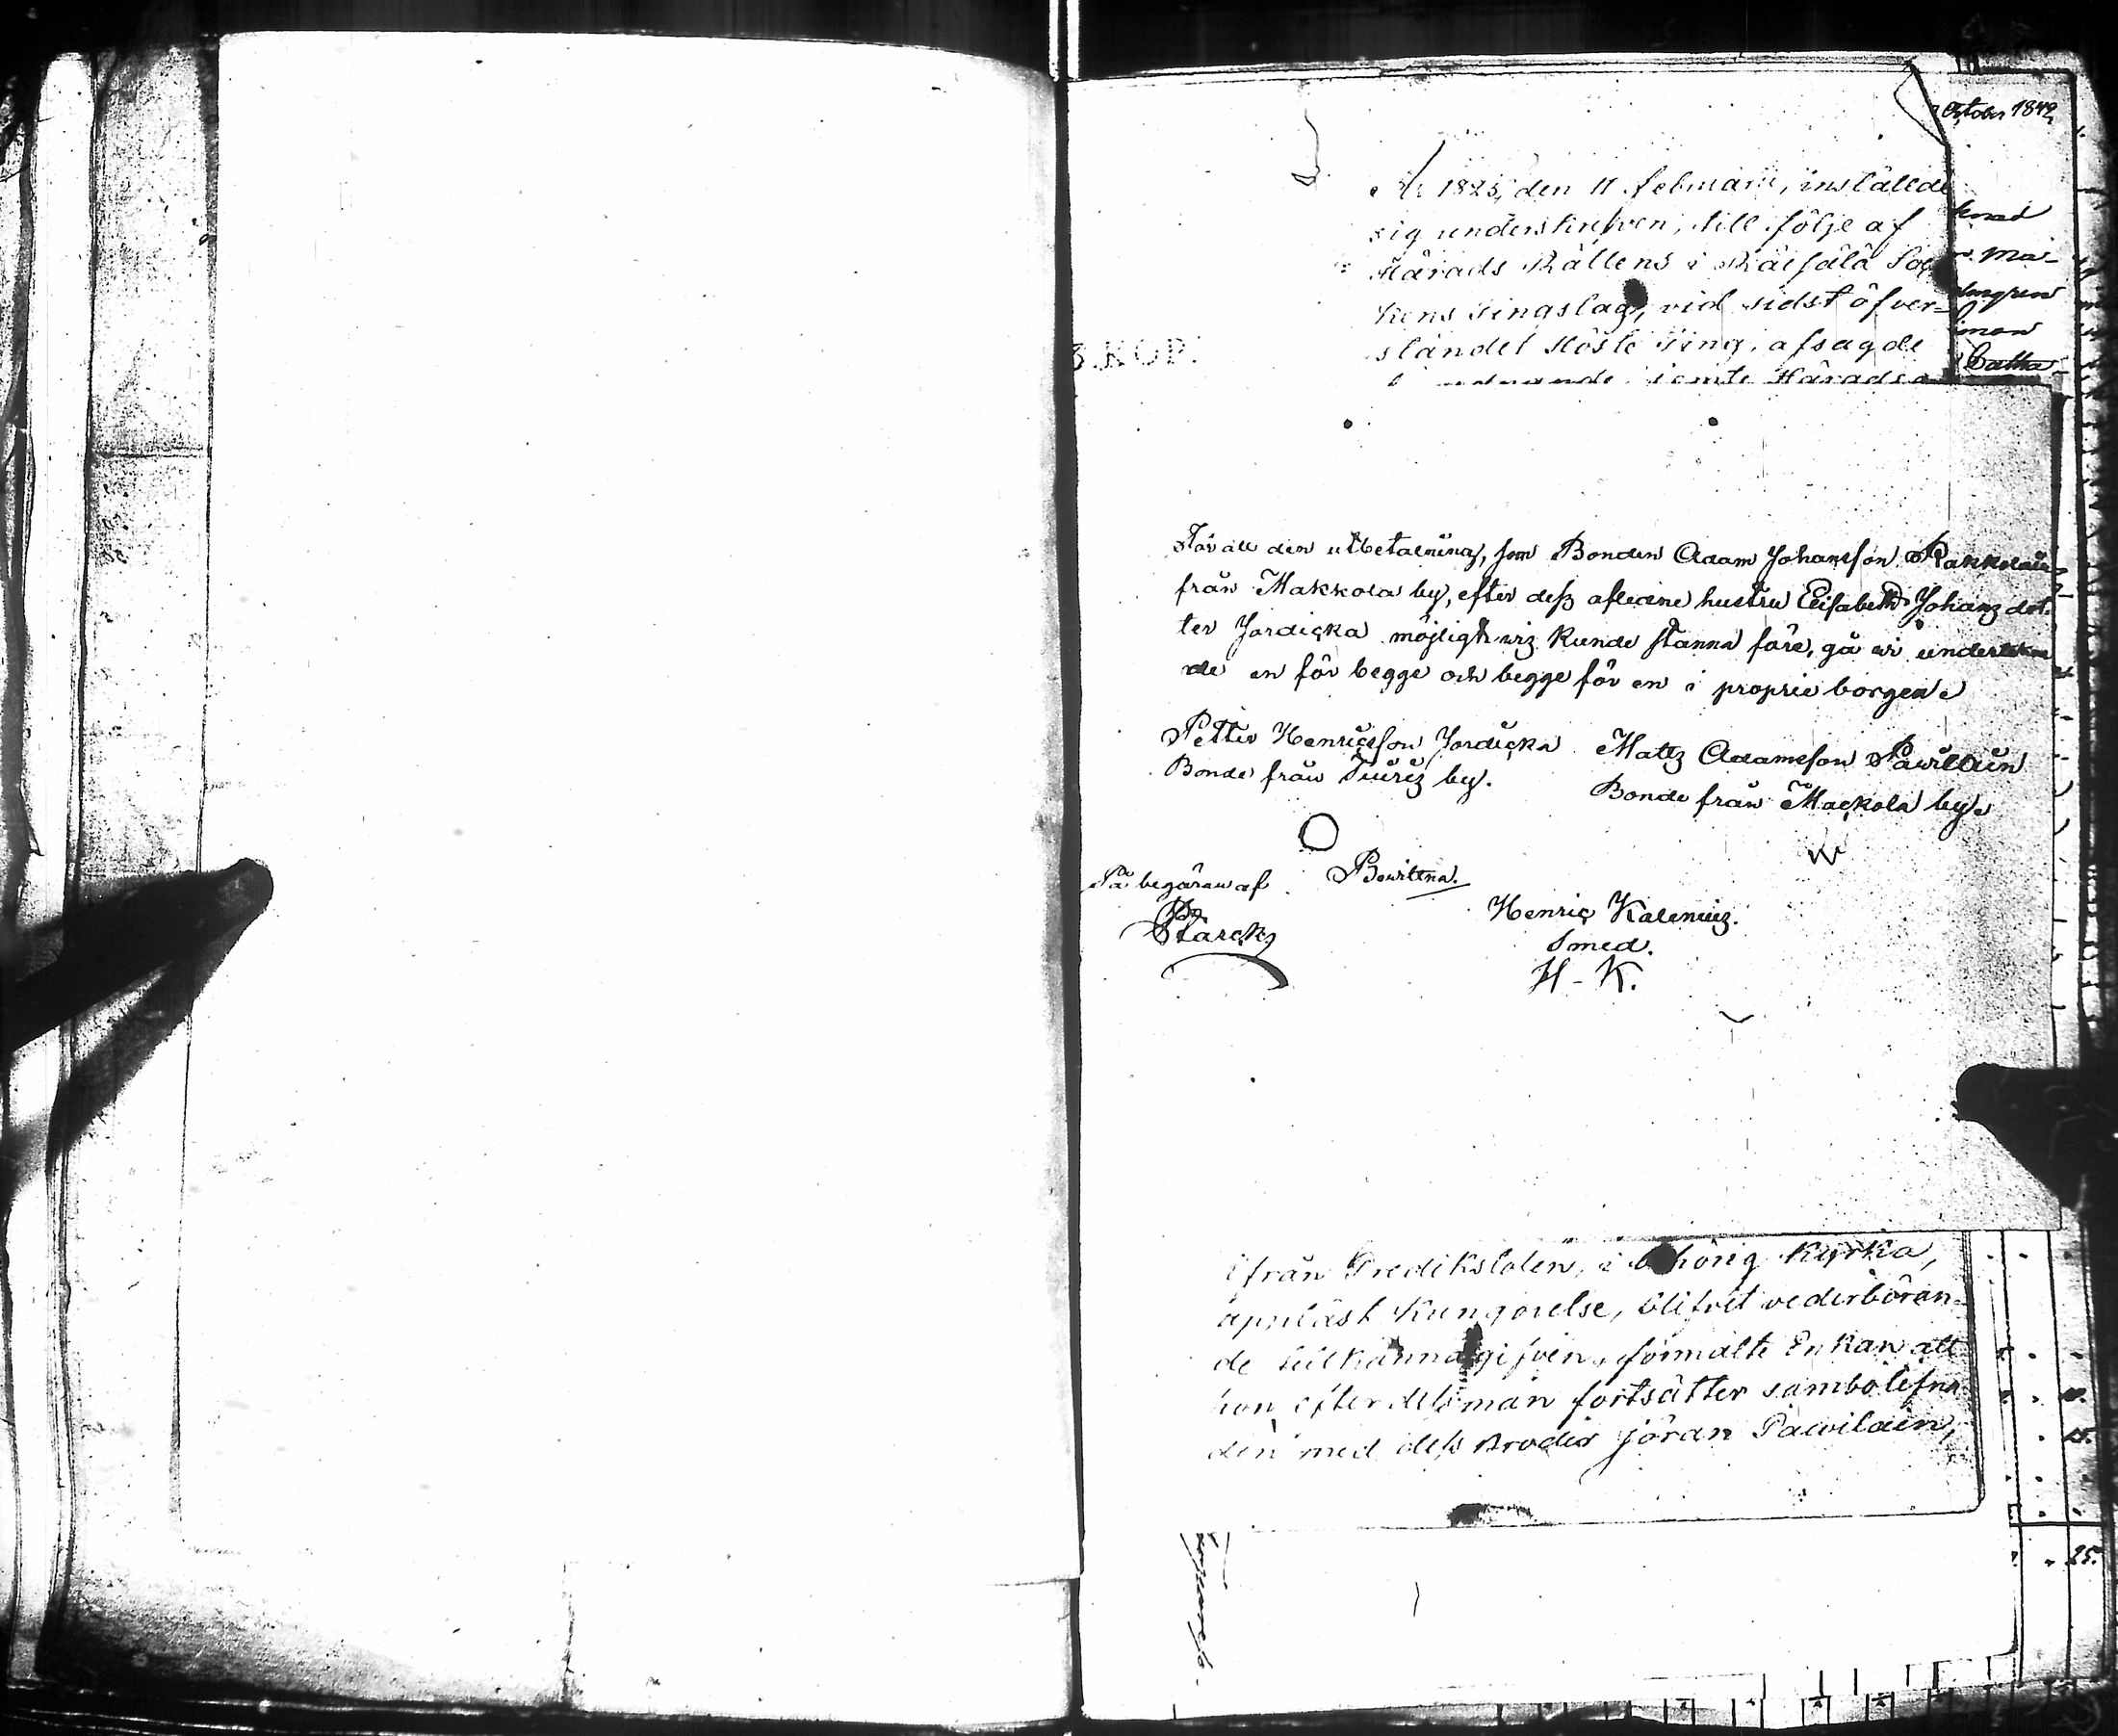 October 1842,
År 1825, den 11 februarii, inställde
sig underskrefven, till följe af
Härads Rättens i Räisälä Soc
kens Tingslag, vid sidst öfver-
ståndet Höste Ting, afsagde
jemte Härads
3.KOP.
För all den utbetalning, som Bonden Adam Johansson Pakkolain
från Makkola by, efter dess afledne hustru Elisabeth Johans dot
ter Jordicka möjligtwiz kunde stanna före, gå wi underteckna
de en för begge och begge för en i proprie borgen
Petter Henricsson Jordicka Mattz Adamsson Pawilain
Bonde från Tiuriz by. Bonde från Mackola by
På begäran af Bewittna.
Starck
Henric Kalenius.
Smed.
H - K.
ifrån Predikstolen, i behörig Kyrka,
uppläst Kungörelse, blifvit vederböran-
de tillkännagifven, förmälte Enkan att
hon efter dess man fortsätter sambolefna
den med dess Broder Jöran Pawilain,
25.